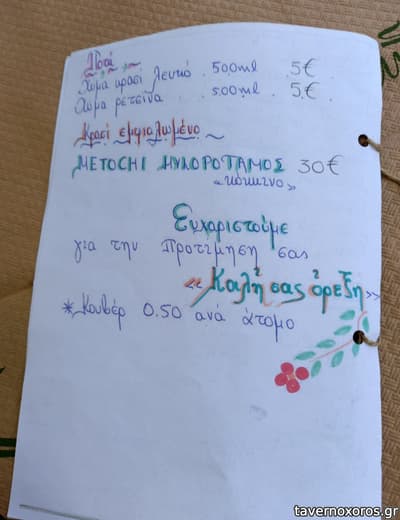 Ποτά
Χύμα κρασί λευκό . 500ml . 5€
Χύμα ρετσίνα . . 500ml . 5€ .
Κρασί εμφιαλωμένο
METOCHI ΜΥΛΟΠΟΤΑΜΟΣ 30€
«κόκκινο»
Ευχαριστούμε
για την Προτίμηση σας
«Καλή σας όρεξη»
*Κουβέρ 0.50 ανά άτομο
tavernoxoros.gr